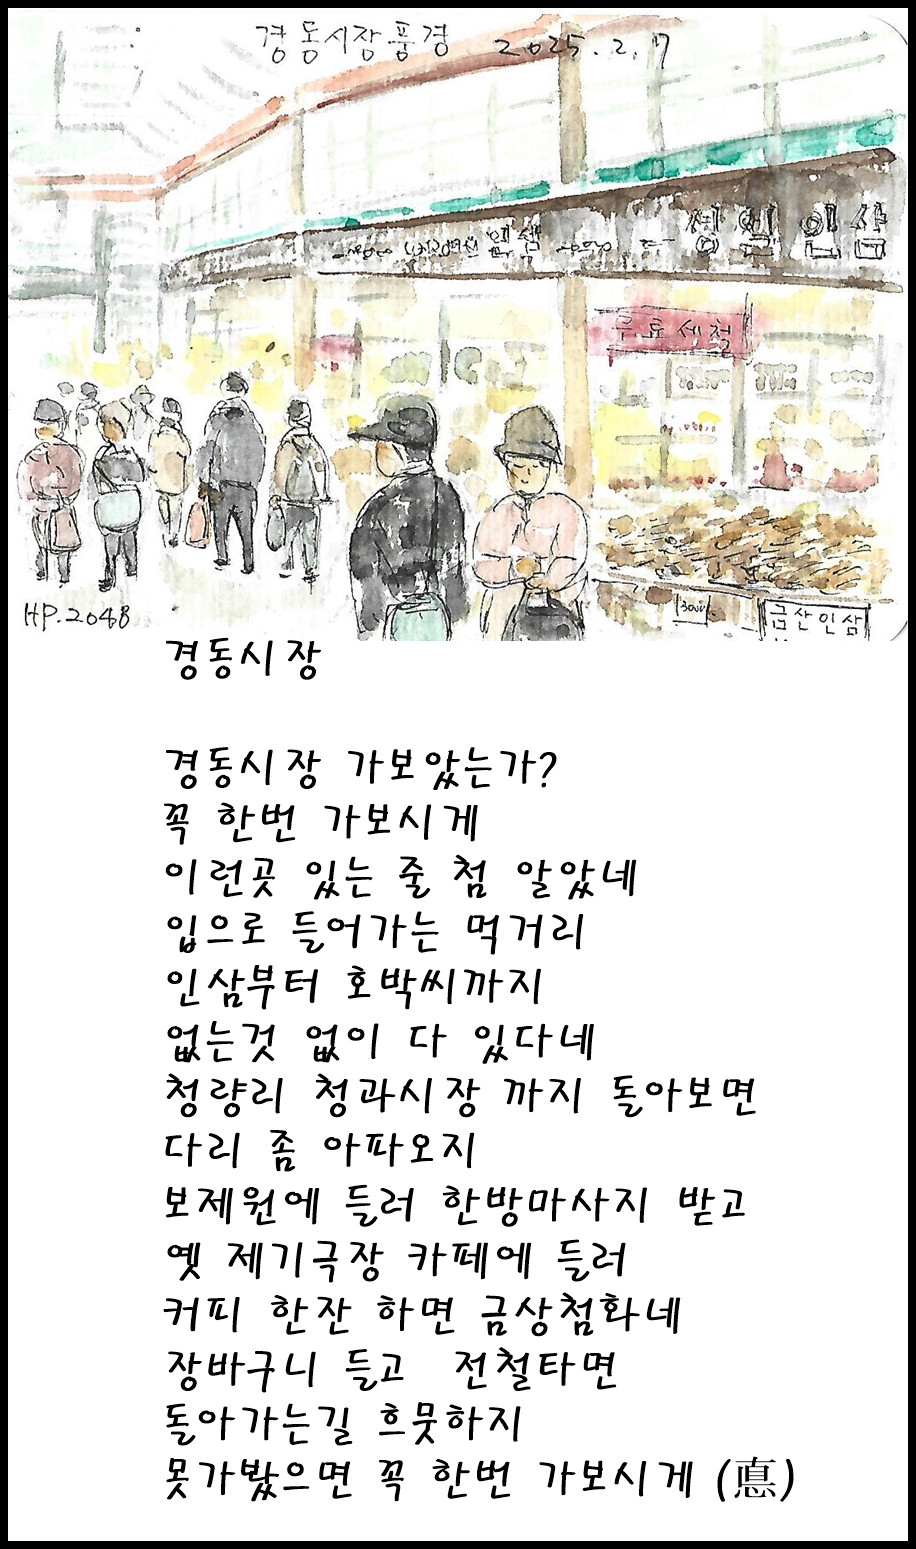 경동시장풍경 2025.2.7
인삼
세일인삼
무료세척
금산인삼
HP.2048
경동시장
경동시장 가보았는가?
꼭 한번 가보시게
이런곳 있는 줄 첨 알았네
입으로 들어가는 먹거리
인삼부터 호박씨까지
없는것 없이 다 있다네
청량리 청과시장 까지 돌아보면
다리 좀 아파오지
보제원에 들러 한방마사지 받고
옛 제기극장 카페에 들러
커피 한잔 하면 금상첨화네
장바구니 들고 전철타면
돌아가는길 흐뭇하지
못가봤으면 꼭 한번 가보시게 (悳)